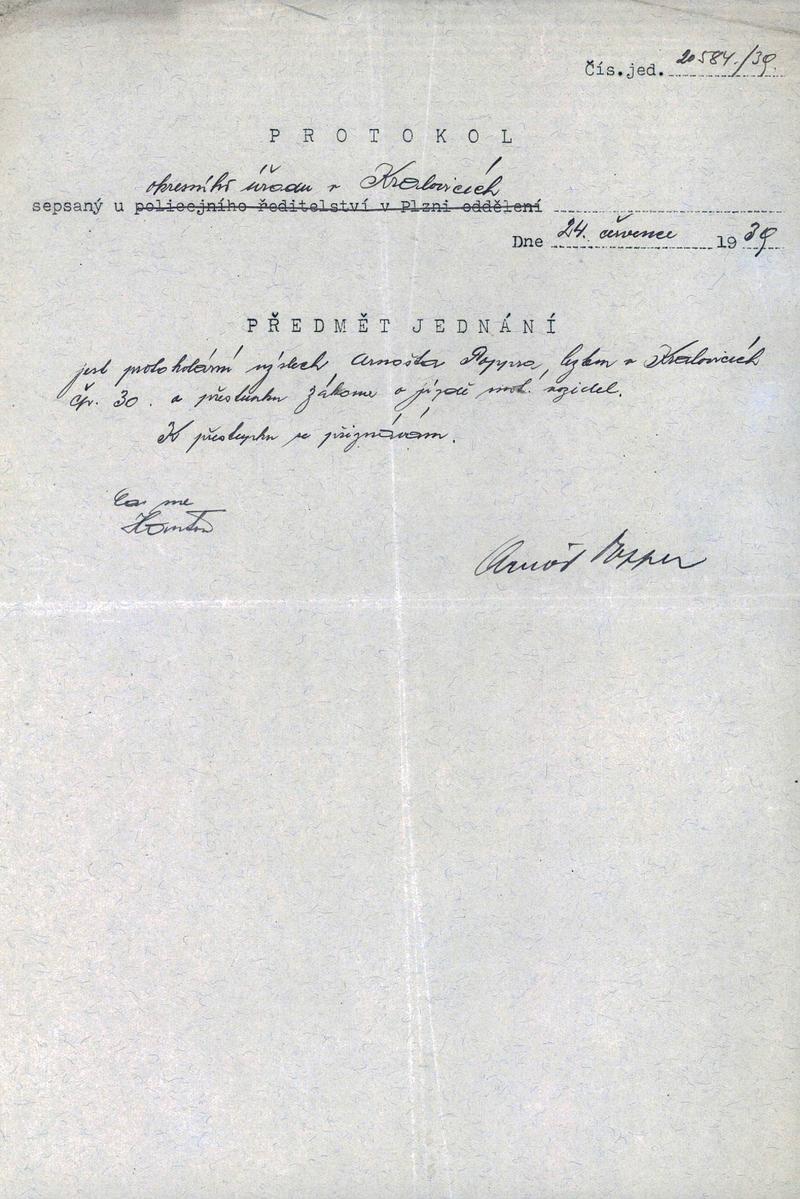 Čís.jed. 20584./39.
PROTOKOL
okresního úřadu v Kralovicích
sepsaný u policejního ředitelství v Plzni oddělení
Dne 24. července 1939
PŘEDMĚT JEDNÁNÍ
jest protokolární výslech Arnošta Poppra, bytem v Kralovicích
čp. 30. o přestupku zákona o jízdě mot. vozidel.
K přestupku se přiznávám.
Arnošt Popper